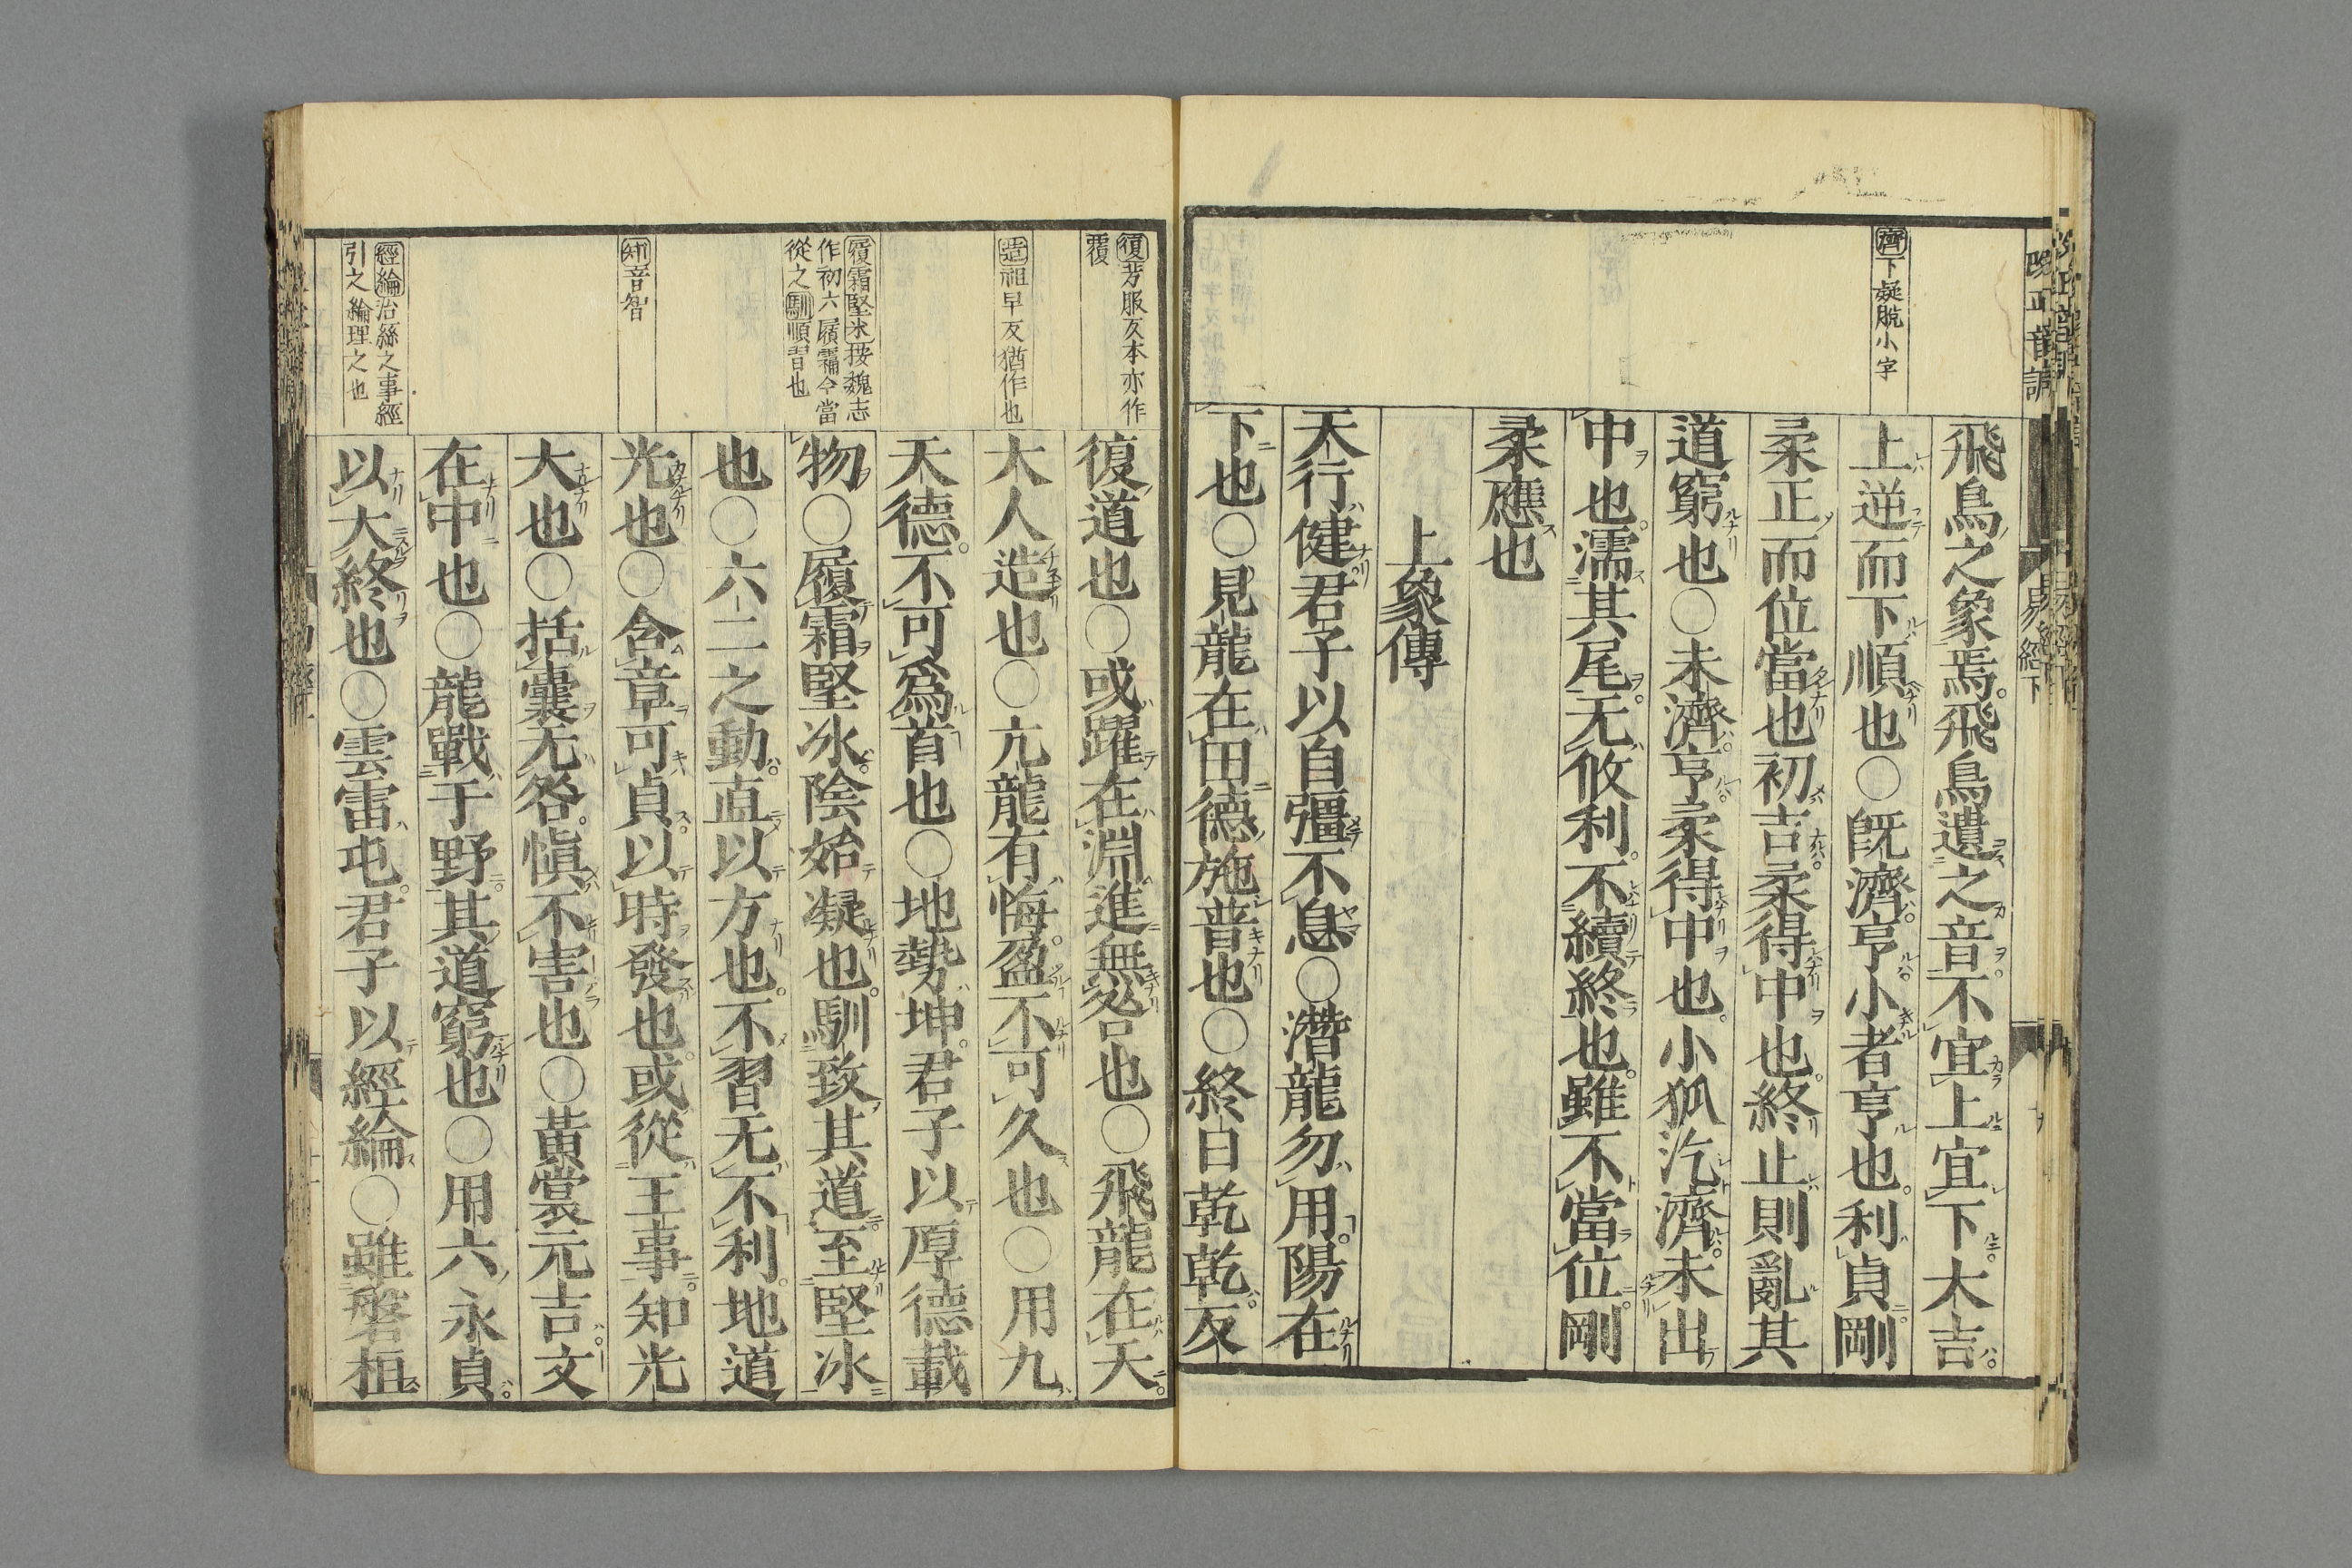 飛鳥之象焉。飛鳥遺之音不宜上宜下大吉
上逆而下順也○旣濟亨小者亨也。利貞剛
柔正而位當也初吉柔得中也。終止則亂其
道窮也○未濟亨柔得中也。小狐汔濟未出
中也。濡其尾无攸利。不續終也。雖不當位剛
柔應也
上象傳
天行健君子以自彊不息○潛龍勿用。陽在
下也○見龍在田德施普也○終日乾乾反
濟下疑脫小字
易經下
復道也○或躍在淵進無咎也○飛龍在天
大人造也○亢龍有悔盈不可久也○用九
天德。不可爲首也○地勢坤。君子以厚德載
物○履霜堅冰陰始凝也。馴致其道至堅冰
也○六二之動直以方也。不習无不利。地道
光也○含章可貞以時發也。或從王事知光
大也○括囊无咎。愼不害也○黃裳元吉文
在中也○龍戰于野其道窮也○用六永貞
以大終也○雲雷屯。君子以經綸○雖磐桓
復芳服反本亦作
覆
造祖早反猶作也
履霜堅氷按魏志
作初六履霜今當
從之馴順習也
知音智
經綸治絲之事經
引之綸理之也